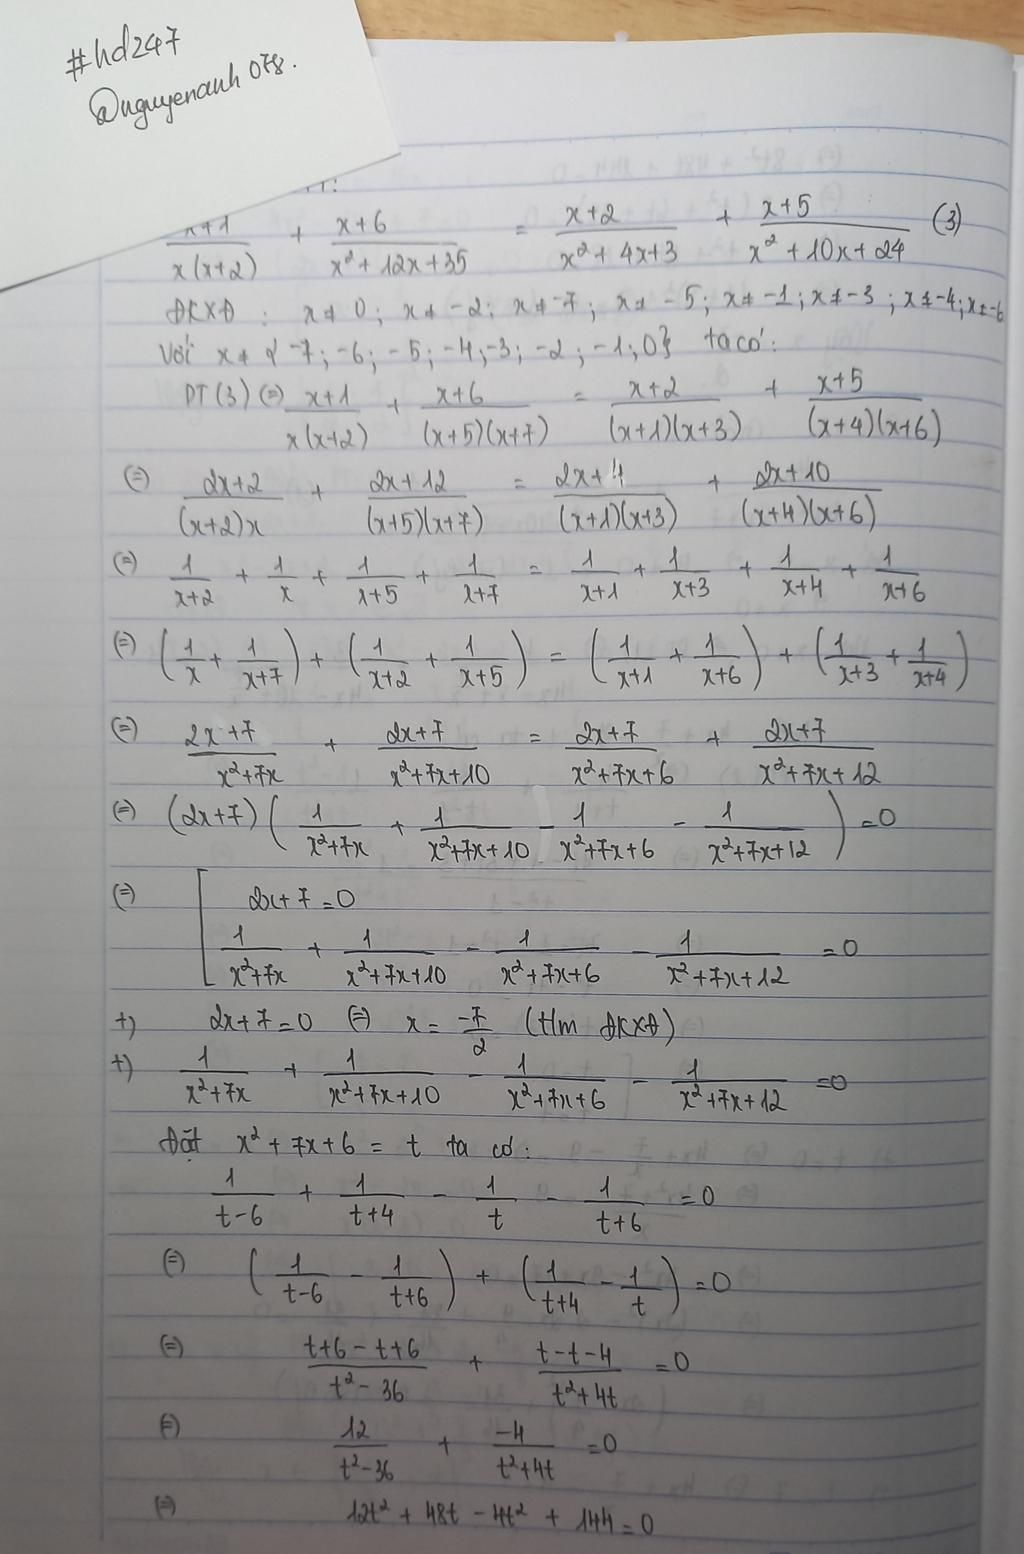 #hd247
@nguyenanh078.
x+1/x(x+2) + x+6/x²+12x+35 = x+2/x²+4x+3 + x+5/x²+10x+24 (3)
ĐKXĐ : x ≠ 0; x ≠ -2; x ≠ -7; x ≠ -5; x ≠ -1; x ≠ -3; x ≠ -4; x ≠ -6
Với x ≠ {-7; -6; -5; -4; -3; -2; -1; 0} ta có:
PT (3) (=) x+1/x(x+2) + x+6/(x+5)(x+7) = x+2/(x+1)(x+3) + x+5/(x+4)(x+6)
(=) 2x+2/(x+2)x + 2x+12/(x+5)(x+7) = 2x+4/(x+1)(x+3) + 2x+10/(x+4)(x+6)
(=) 1/x+2 + 1/x + 1/x+5 + 1/x+7 = 1/x+1 + 1/x+3 + 1/x+4 + 1/x+6
(=) (1/x + 1/x+7) + (1/x+2 + 1/x+5) = (1/x+1 + 1/x+6) + (1/x+3 + 1/x+4)
(=) 2x+7/x²+7x + 2x+7/x²+7x+10 = 2x+7/x²+7x+6 + 2x+7/x²+7x+12
(=) (2x+7)(1/x²+7x + 1/x²+7x+10 - 1/x²+7x+6 - 1/x²+7x+12) = 0
(=) [ 2x+7=0
1/x²+7x + 1/x²+7x+10 - 1/x²+7x+6 - 1/x²+7x+12 = 0
+) 2x+7=0 (=) x = -7/2 (t/m ĐKXĐ)
+) 1/x²+7x + 1/x²+7x+10 - 1/x²+7x+6 - 1/x²+7x+12 = 0
Đặt x²+7x+6 = t ta có:
1/t-6 + 1/t+4 - 1/t - 1/t+6 = 0
(=) (1/t-6 - 1/t+6) + (1/t+4 - 1/t) = 0
(=) t+6-t+6/t²-36 + t-t-4/t²+4t = 0
(=) 12/t²-36 + -4/t²+4t = 0
(=) 12t² + 48t - 4t² + 144 = 0